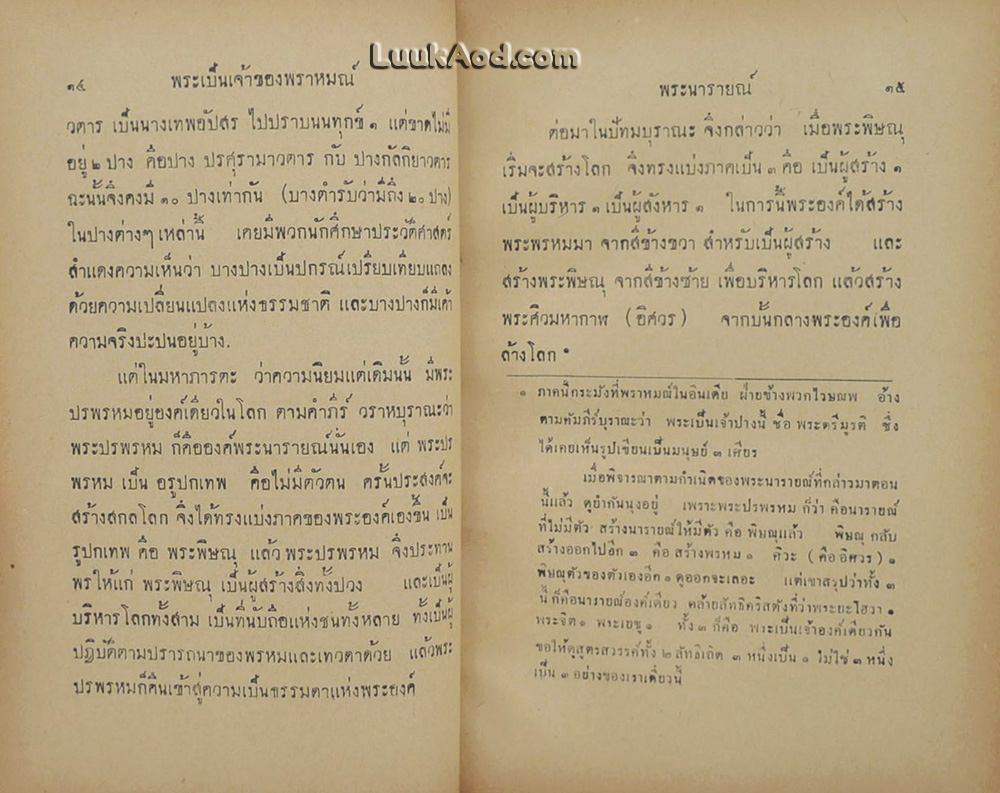 LuukAod.com
๑๔ พระเป็นเจ้าของพราหมณ์
วตาร เป็นนางเทพอัปสร ไปปราบนนทุกข์ ๑ แต่ขาดไม่มี
อยู่ ๒ ปาง คือปาง ปรศุรามาวตาร กับ ปางกัลกิยาวตาร
ฉะนั้นจึงคงมี ๑๐ ปางเท่ากัน (บางตำรับว่ามีถึง ๒๐ ปาง)
ในปางต่างๆ เหล่านี้ เคยมีพวกนักศึกษาประวัติศาสตร์
สำแดงความเห็นว่า บางปางเป็นปกรณ์เปรียบเทียบแถลง
ด้วยความเปลี่ยนแปลงแห่งธรรมชาติ และบางปางก็มีเค้า
ความจริงปะปนอยู่บ้าง.
แต่ในมหาภารตะ ว่าความนิยมแต่เดิมนั้น มีพระ
ปรพรหมอยู่องค์เดียวในโลก ตามคำภีร์ วราหบุราณะว่า
พระปรพรหม ก็คือองค์พระนารายณ์นั่นเอง แต่ พระปร
พรหม เป็น อรูปกเทพ คือไม่มีตัวตน ครั้นประสงค์จะ
สร้างสกลโลก จึงได้ทรงแบ่งภาคของพระองค์เองขึ้น เป็น
รูปกเทพ คือ พระพิษณุ แล้ว พระปรพรหม จึงประทาน
พรให้แก่ พระพิษณุ เป็นผู้สร้างสิ่งทั้งปวง และเป็นผู้
บริหารโลกทั้งสาม เป็นที่นับถือแห่งชนทั้งหลาย ทั้งเป็นผู้
ปฏิบัติตามปรารถนาของพรหมและเทวดาด้วย แล้วพระ
ปรพรหมก็คืนเข้าสู่ความเป็นธรรมดาแห่งพระองค์
พระนารายณ์ ๑๕
ต่อมาในปัทมบุราณะ จึงกล่าวว่า เมื่อพระพิษณุ
เริ่มจะสร้างโลก จึงทรงแบ่งภาคเป็น ๓ คือ เป็นผู้สร้าง ๑
เป็นผู้บริหาร ๑ เป็นผู้สังหาร ๑ ในการนี้พระองค์ได้สร้าง
พระพรหมมา จากสีข้างขวา สำหรับเป็นผู้สร้าง และ
สร้างพระพิษณุ จากสีข้างซ้าย เพื่อบริหารโลก แล้วสร้าง
พระศิวมหากาฬ (อิศวร) จากบั้นกลางพระองค์เพื่อ
ล้างโลก ๑
๑ ภาคนี้กระมังที่พราหมณ์ในอินเดีย ฝ่ายข้างพวกไวษณพ อ้าง
ตามคัมภีร์บุราณะว่า พระเป็นเจ้าปางนี้ ชื่อ พระตรีมูรติ ซึ่ง
ได้เคยเห็นรูปเขียนเป็นมนุษย์ ๓ เศียร
เมื่อพิจารณาตามกำเนิดของพระนารายณ์ที่กล่าวมาตอน
นี้แล้ว ดูยำกันนุงอยู่ เพราะพระปรพรหม ก็ว่า คือนารายณ์
ที่ไม่มีตัว สร้างนารายณ์ให้มีตัว คือ พิษณุแล้ว พิษณุ กลับ
สร้างออกไปอีก ๓ คือ สร้างพรหม ๑ ศิวะ (คืออิศวร) ๑
พิษณุตัวของตัวเองอีก ๑ ดูออกจะเลอะ แต่เขาสรุปว่าทั้ง ๓
นี้ ก็คือนารายณ์องค์เดียว คล้ายลัทธิคริสตังที่ว่าพระยะโฮวา ๑
พระจิต ๑ พระเยซู ๑ ทั้ง ๓ ก็คือ พระเป็นเจ้าองค์เดียวกัน
ขอให้ดูสูตรสวรรค์ทั้ง ๒ ลัทธิเถิด ๓ หนึ่งเป็น ๑ ไม่ใช่ ๓ หนึ่ง
เป็น ๓ อย่างของเราเดี๋ยวนี้